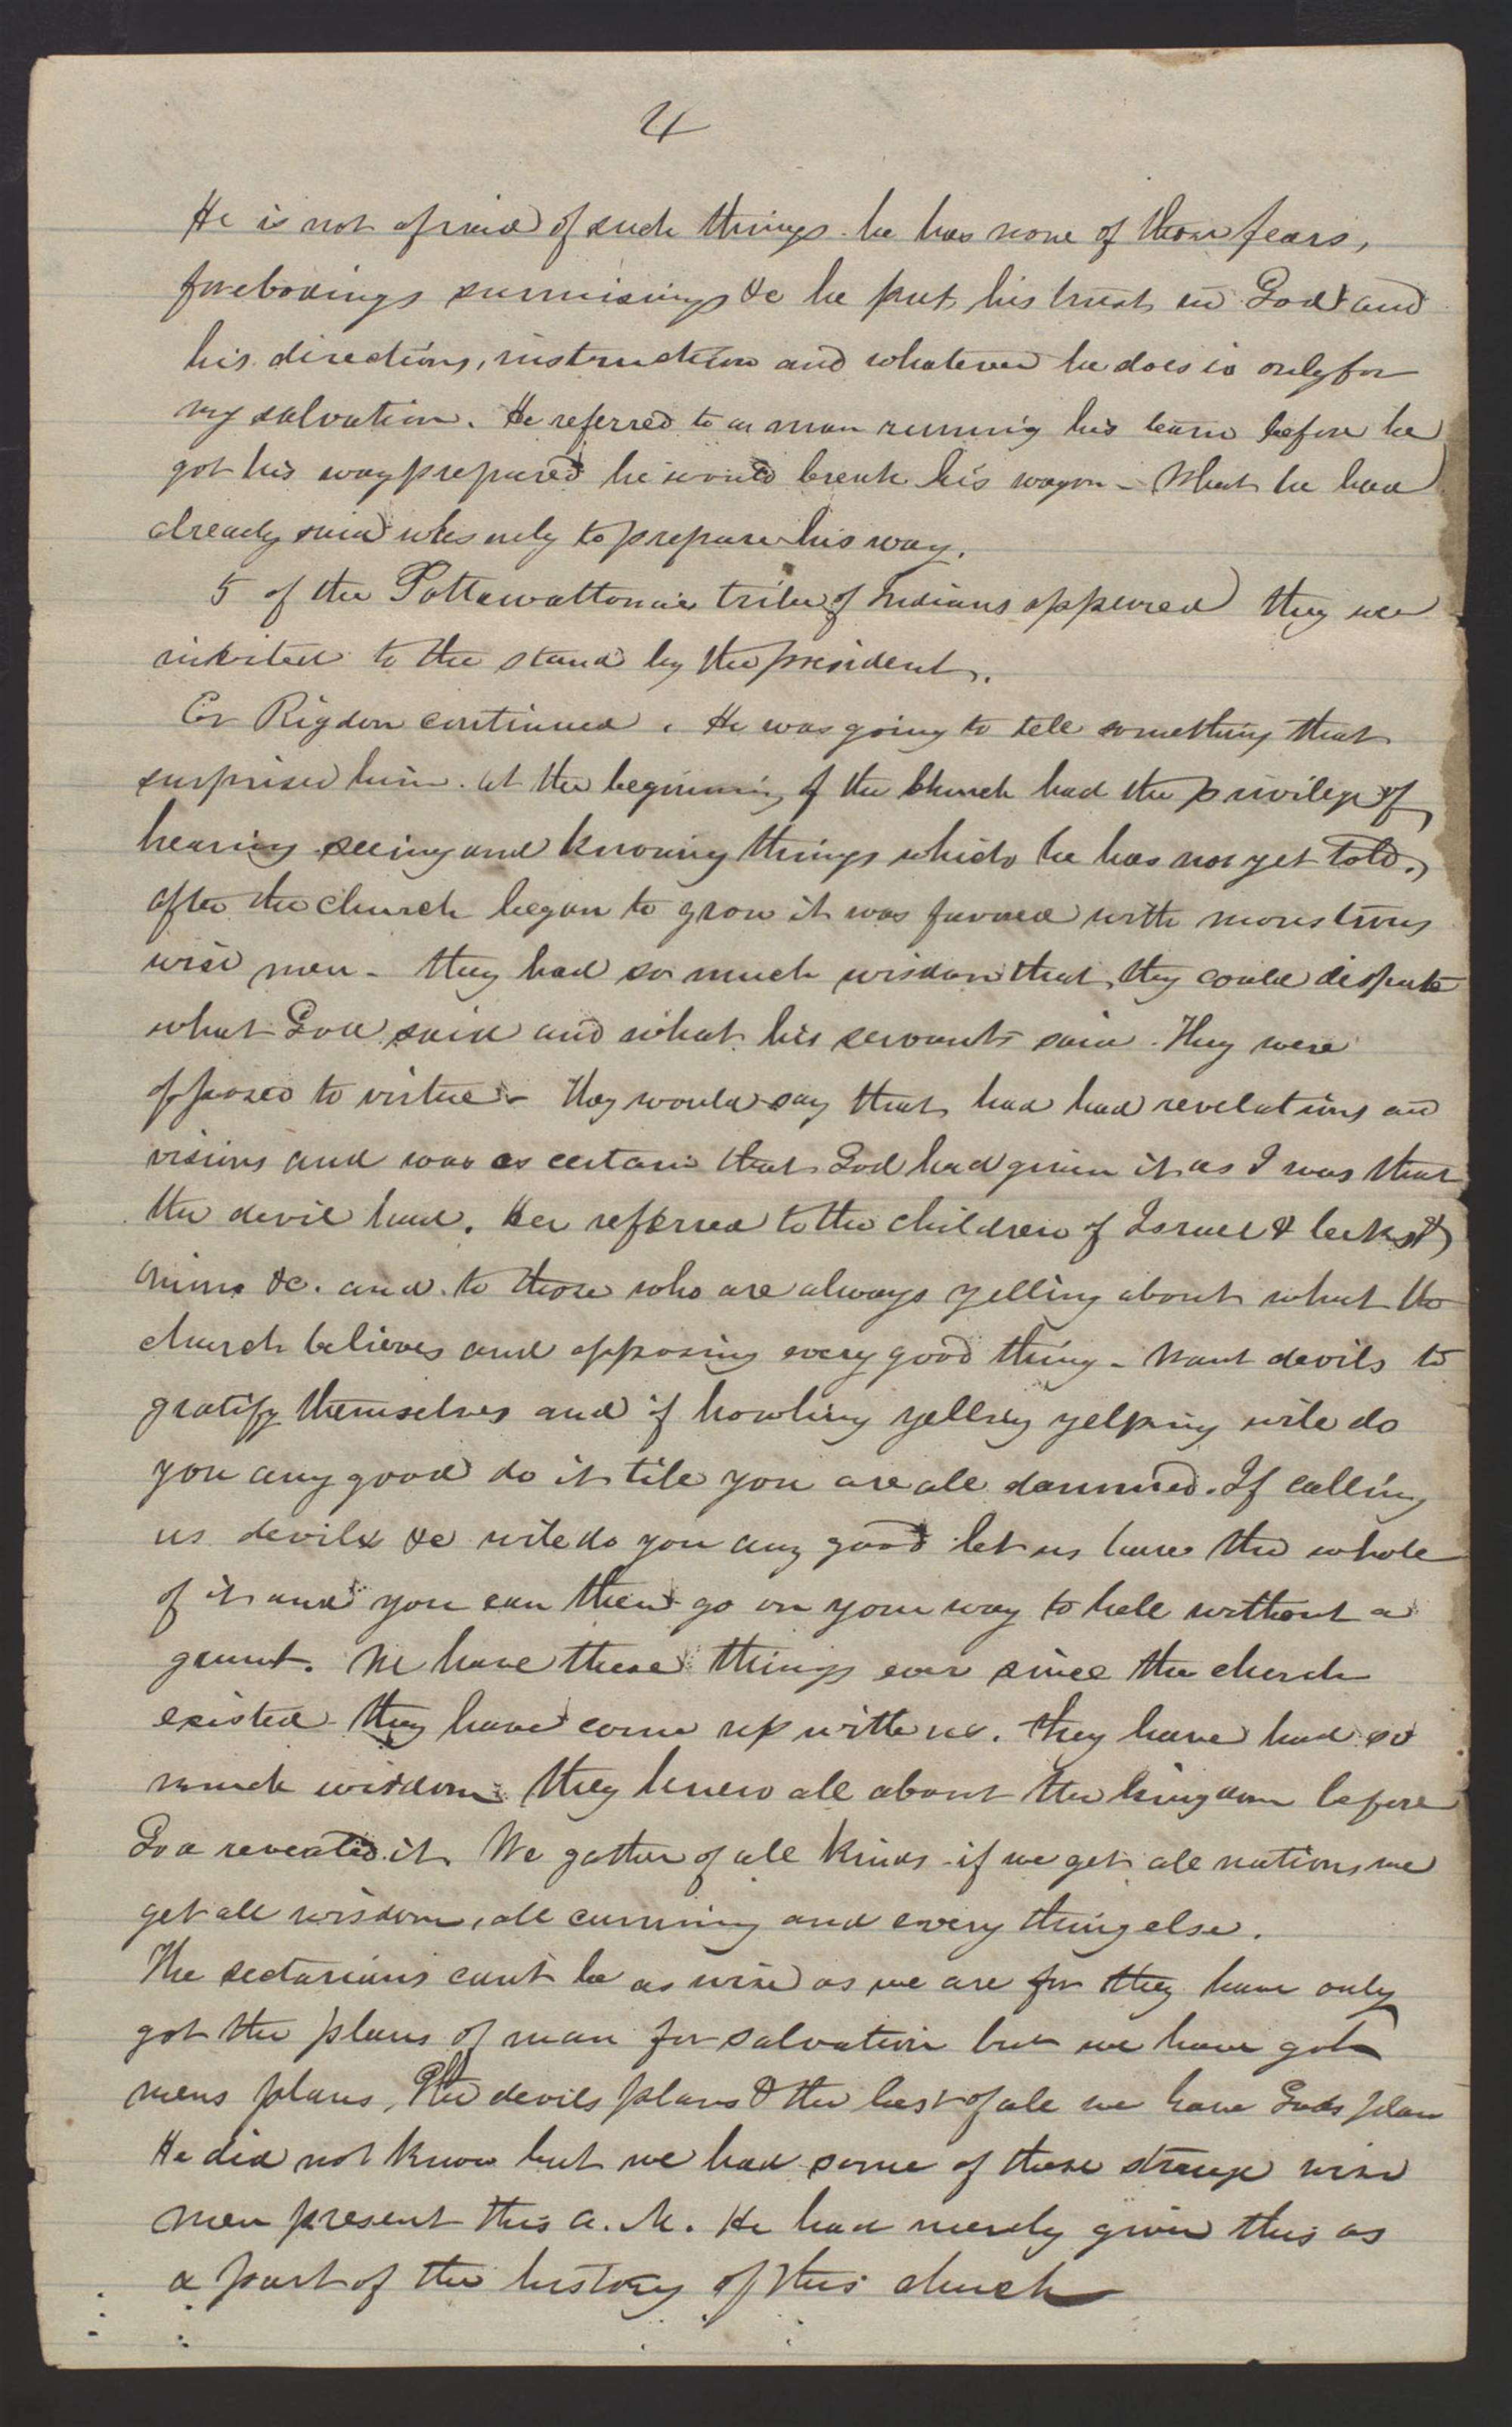 4
He is not afraid of such things he has none of those fears,
forebodings surmisings &c he put his trust in God and
his directions, instruction and whatever he does is only for
my salvation. He referred to a man running his team before he
got his way prepared he would break his wagon - What he had
already said was only to prepare his way.
5 of the Pottawattomie tribe of Indians appeared they were
invited to the stand by the president.
Er Rigdon continued. He was going to tell something that
surprised him. At the beginning of the Church had the privilege of
hearing seeing and knowing things which he has not yet told.
after the church began to grow it was favored with monstrous
wise men - they had so much wisdom that they could dispute
what God said and what his servants said. They were
opposed to virtue - They would say that had had revelations and
visions and was as certain that God had given it as I was that
the devil had. He referred to the children of Israel & leeks &
onions &c. and to those who are always yelling about what the
church believes and opposing every good thing - Want devils to
gratify themselves and if howling yelling yelping will do
you any good do it till you are all damned. If calling
us devils &c will do you any good let us have the whole
of it and you can then go on your way to hell without a
grunt. We have these things ever since the church
existed they have come up with us. they have had so
much wisdom they knew all about the kingdom before
God revealed it. We gather of all kinds - if we get all nations we
get all wisdom, all cunning and every thing else.
The sectarians cant be as wise as we are for they have only
got the plans of man for salvation but we have got
mens plans, the devils plans & the best of all we have Gods plan
He did not know but we had some of these strange wise
men present this A. M. He had merely given this as
a part of the history of this church